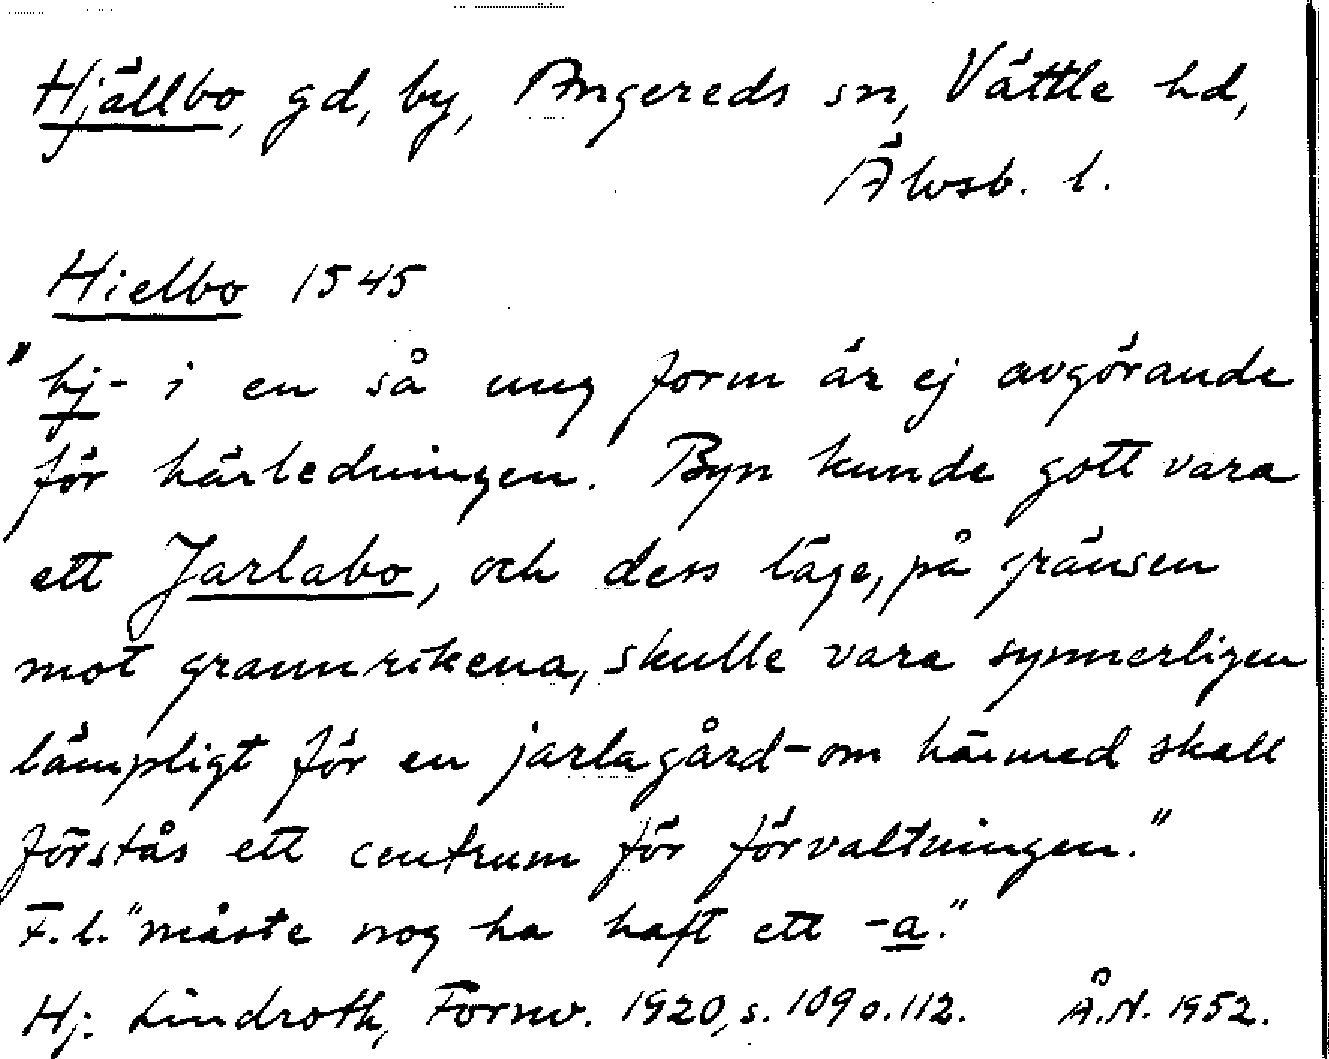 Hjällbo, gd, by, Angereds sn, Vättle hd,
Älvsb. l.
Hielbo 1545
"hj- i en så ung form är ej avgörande
för härledningen. Byn kunde gott vara
ett Jarlabo, och dess läge, på gränsen
mot grannrikena, skulle vara synnerligen
lämpligt för en jarlagård - om härmed skall
förstås ett centrum för förvaltningen."
F.l. "måste nog ha haft ett -a."
Hj. Lindroth, Fornv. 1920, s. 109 o. 112. Å.N. 1952.